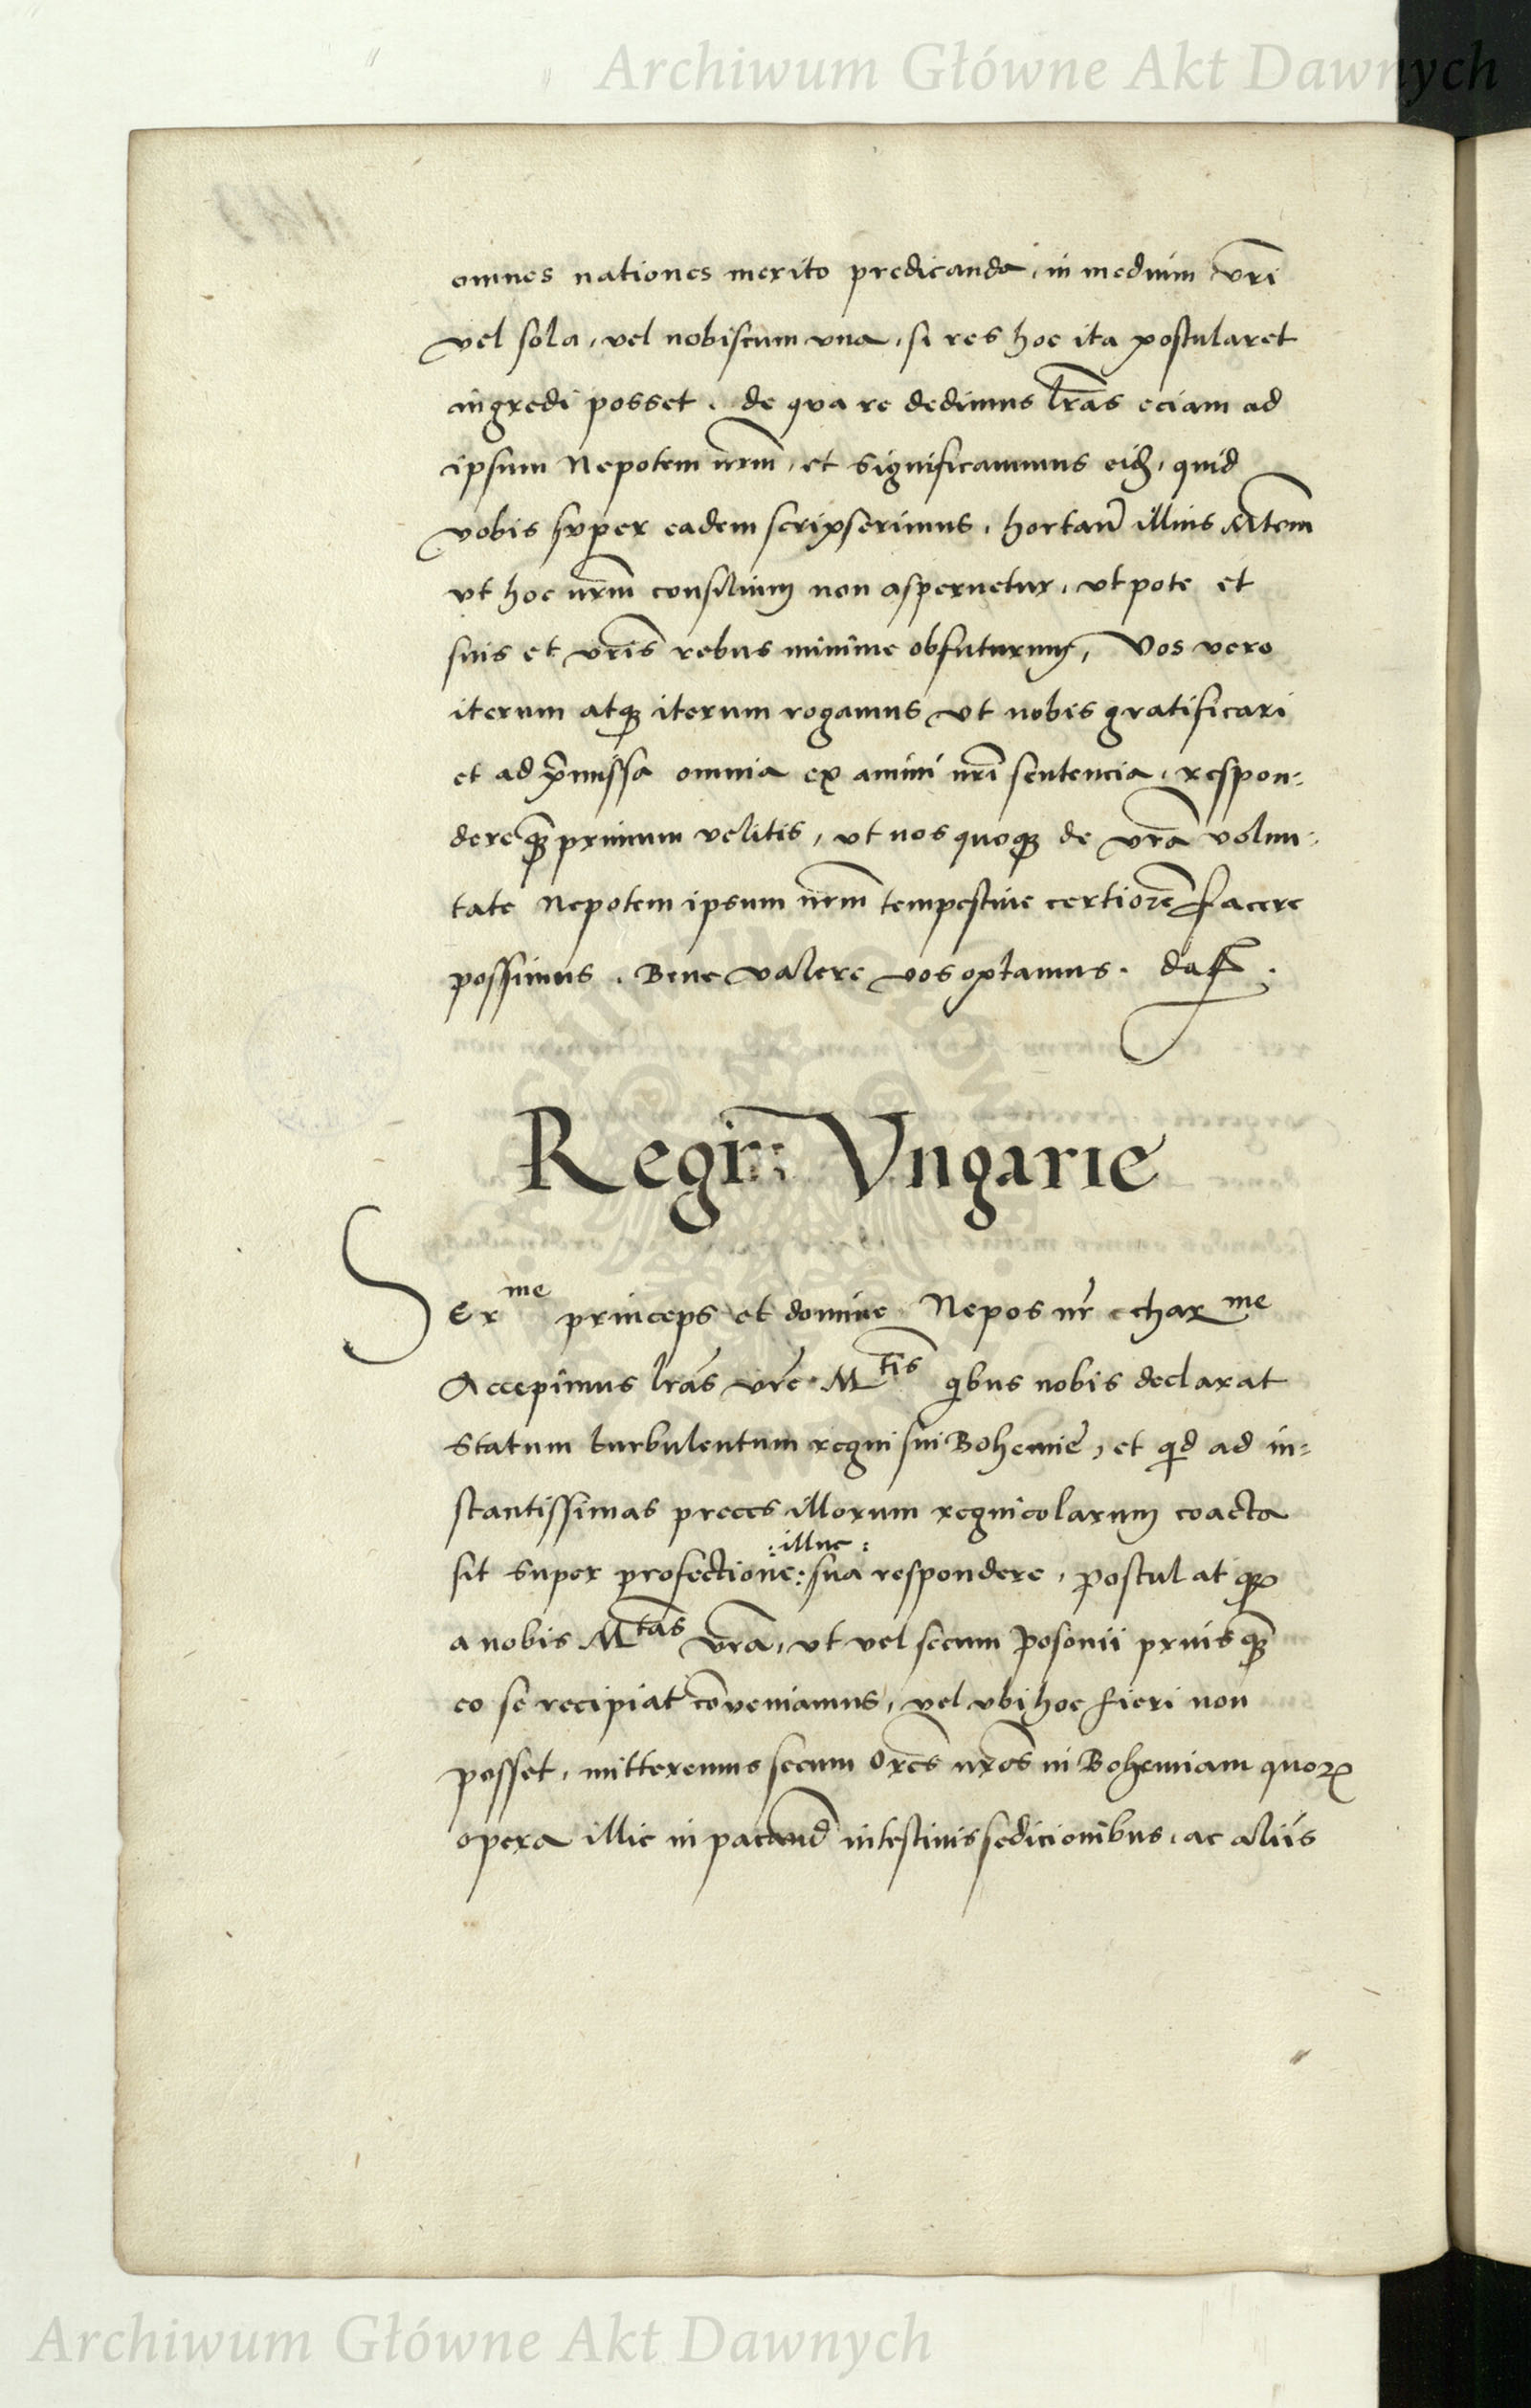 Archiwum Główne Akt Dawnych
omnes nationes merito predicanda, in medium vr̄i
vel sola, vel nobiscum vna, si res hoc ita postularet
ingredi posset. de qua re dedimus lr̄as eciam ad
ipsum Nepotem nr̄m, et significauimus eidē, quid
vobis super eadem scripserimus, hortan̄ illius Mt̄em
vt hoc nr̄m consilium non aspernetur, vt pote et
suis et vr̄is rebus minime obfuturum, Vos vero
iterum atqꝫ iterum rogamus vt nobis gratificari
et ad p̄missa omnia ex animi nr̄i sentencia, respon=
dere qꝫ̄primum velitis, vt nos quoqꝫ de vr̄a volun=
tate Nepotem ipsum nr̄m tempestiue certiorē facere
possimus. Bene valere vos optamus. dat̄.
Regi: Vngarie
Serme princeps et domine Nepos nr̄ charme
Accepimus lr̄as vr̄e Mtis qibus nobis declarat
Statum turbulentum regni sui Bohemie, et qid ad in=
stantissimas preces illorum regnicolarum coacta
:illuc:
sit super profectione: sua respondere, postulat qꝫ
a nobis Mtas vr̄a, vt vel secum Posonii priusqꝫ̄
eo se recipiat cōveniamus, vel vbi hoc fieri non
posset, mitteremus secum Or̄es nr̄os in Bohemiam quoꝝ
opera illic in pacand̄ intestinis sedicionibus, ac aliis
Archiwum Główne Akt Dawnych